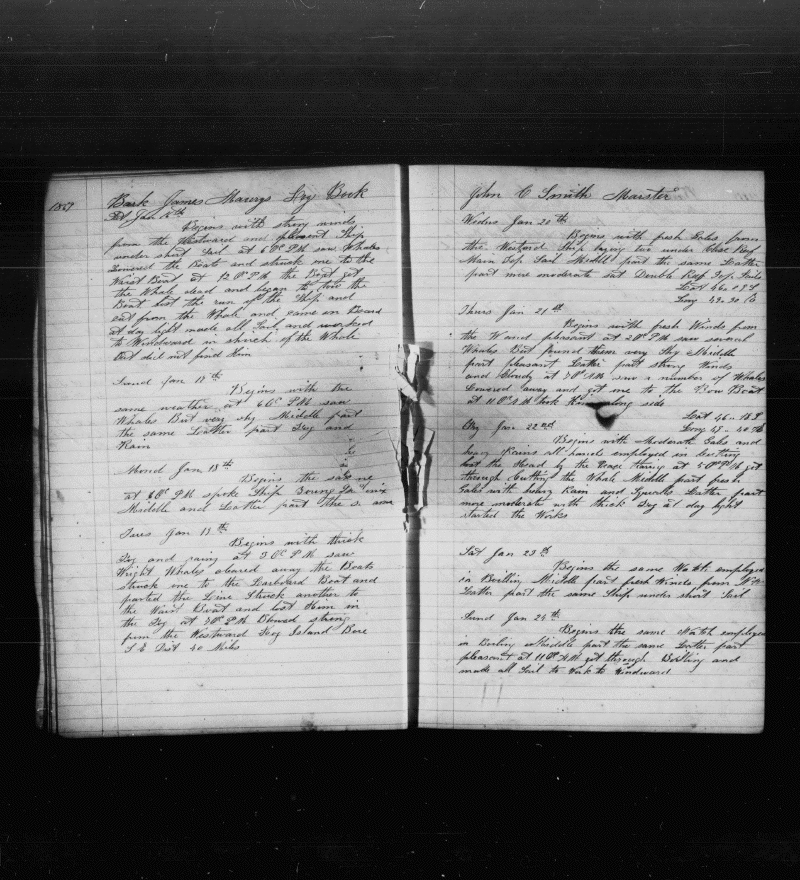 1857
Bark James Maurys Log Book
Sat Jan
Begins with strong winds
from the Westward and pleasent Ship
under short Sail at 4 Oc P.M. saw Whales
Lowered the Boats and struck one to the
Waist Boat at P.M. the Boat got
the Whale dead and began to tow the
Boat lost the run of the Ship and
cut from the Whale and came on Board
at day light made all Sail and worked
to Windward in search of the Whale
but did not find him
Sund Jan 18th
Begins with the
same weather at 6 Oc P.M. saw
Whales But very shy Middle part
the same Leatter part Fog and
Rain
Mond Jan
Begins the same
at 6 Oc P.M. spoke Ship Young
Middle and Leatter part the same
Tues Jan
Begins with thick
Fog and rainy at 3 Oc P.M. saw
Wright Whales cleared away the Boats
struck one to the Larboard Boat and
parted the Line Struck another to
the Waist Boat and lost them in
the Fog at P.M. strong
from the Westward Island Bore
S E Dist 40 Miles
John C Smith Marster
Wedns Jan 20th
Begins with fresh Gales from
the Westard Ship laying too under Close Reef
Main Top Sail Middle part the same Leatter
part more moderate set Double Reef Top Sails
Lat 46.
Long 49.30
Thurs Jan 21st
Begins with fresh Winds from
the W and pleasant at 2 Oc P.M. saw several
Whales But found them very Shy Middle
part pleasant Leatter part strong Winds
and Cloudy at A.M. saw a number of Whales
Lowered away and got one to the Bow Boat
at 11 Oc A.M. took him along side
Lat 46.
Long
Fry Jan 22nd
Begins with Moderate Gales and
heavy Rains all hands employed in Cutting
lost the Head by the Nose at 5 Oc P.M. got
through Cutting the Whale Middle part fresh
Gales with heavy Rain and Squalls Leatter part
more moderate with thick Fog at day light
started the Works
Sat Jan 23th
Begins the same Watch employed
in Boilling Middle part fresh Winds from
Leatter part the same Ship under short Sail
Sund Jan 24th
Begins the same Watch employed
in Boiling Middle part the same Leatter part
pleasant at 11 Oc A.M. got through Boilling and
made all Sail to Work to Windward